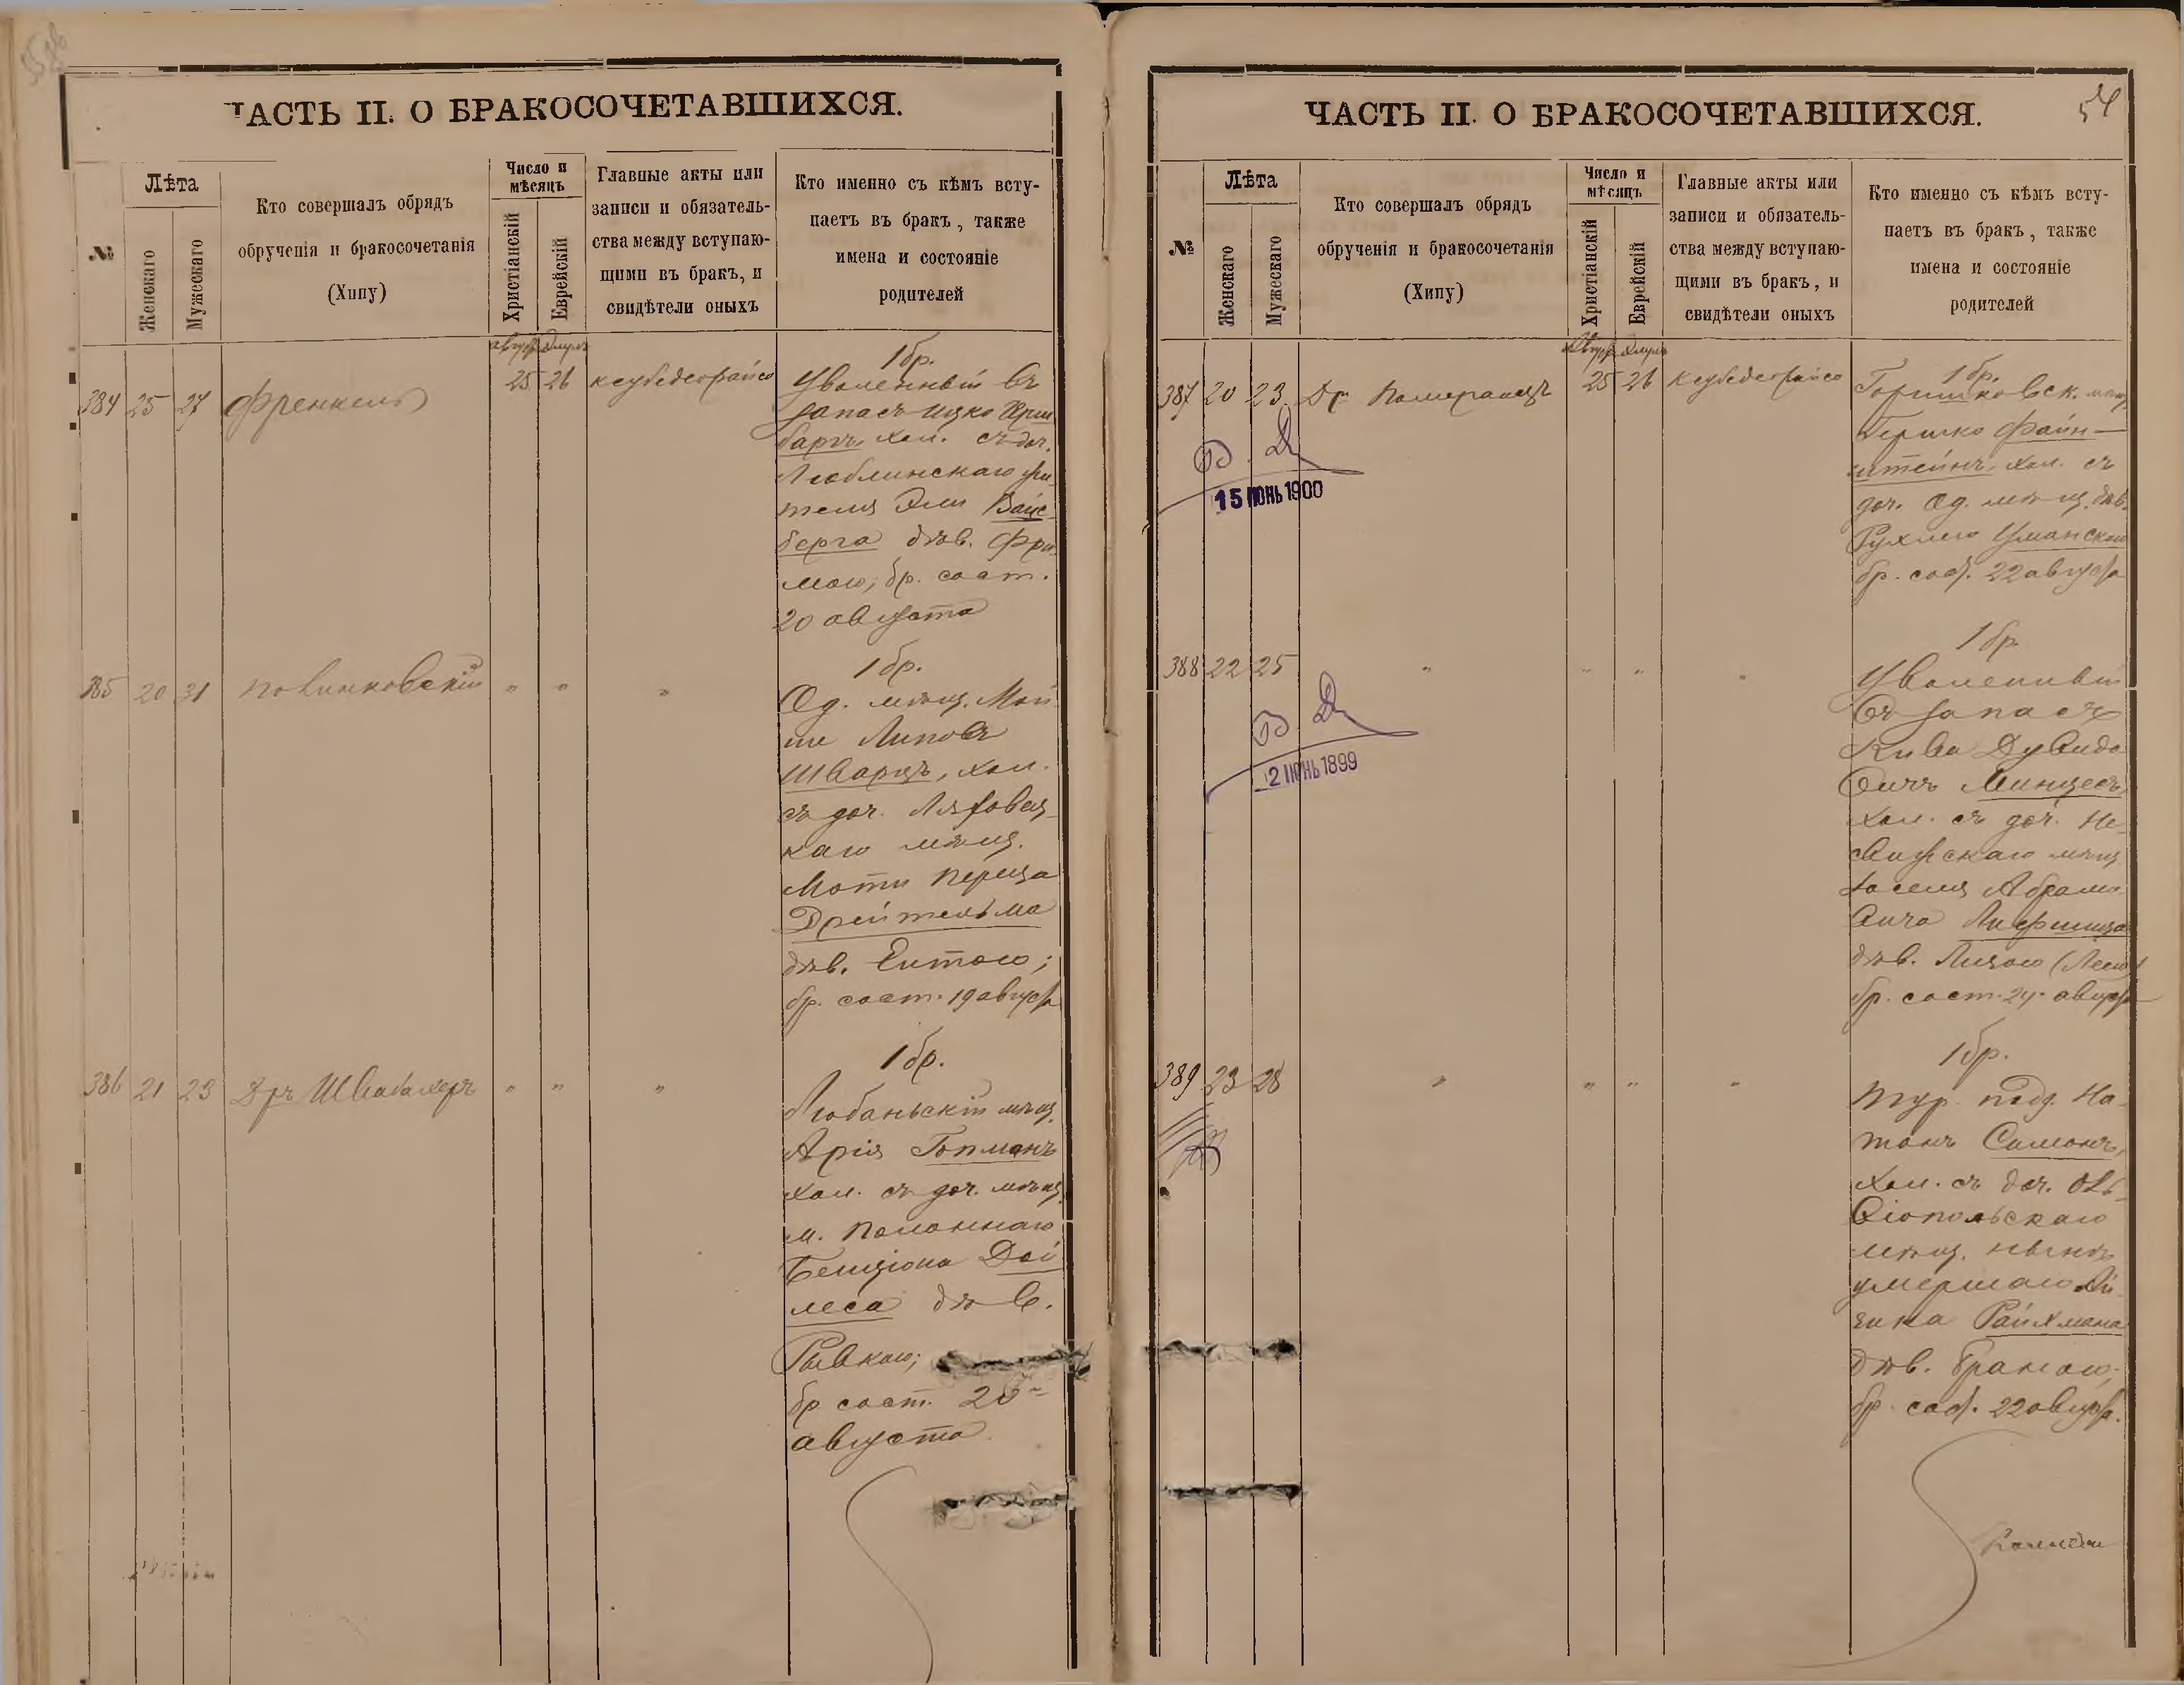 ЧАСТЬ II. О БРАКОСОЧЕТАВШИХСЯ.
№
Лѣта
Женскаго
Мужескаго
Кто совершалъ обрядъ
обрученія и бракосочетанія
(Хипу)
Число и
мѣсяцъ
Христіанскій
Еврейскій
Главные акты или
записи и обязатель-
ства между вступаю-
щими въ бракъ, и
свидѣтели оныхъ
Кто именно съ кѣмъ всту-
паетъ въ бракъ, также
имена и состояніе
родителей
384 25 27 Френкель 25 26
1 бр.
Уволенный въ
запасъ Ицко
хол. съ доч.
Люблинскаго жи-
теля Эли Вайс-
берга дѣв. Фри-
мою; бр. сост.
20 августа
385 20 31 Новинковскій " " "
1 бр.
Од. мѣщ. Мой-
ше Липовъ
Шварцъ, хол.
съ доч. Ляховец-
каго мѣщ.
Моти Переца
Дрейтельма
дѣв. Ентою;
бр. сост. 19 августа
386 21 23 Дръ Швабахеръ " " "
1 бр.
Любаньскій мѣщ.
Арія Гопманъ
хол. съ доч. мѣщ.
м. Полоннаго
Бенціона Дой-
леса дѣв.
Рывкою;
бр сост. 20
августа
54
ЧАСТЬ II. О БРАКОСОЧЕТАВШИХСЯ.
№
Лѣта
Женскаго
Мужескаго
Кто совершалъ обрядъ
обрученія и бракосочетанія
(Хипу)
Число и
мѣсяцъ
Христіанскій
Еврейскій
Главные акты или
записи и обязатель-
ства между вступаю-
щими въ бракъ, и
свидѣтели оныхъ
Кто именно съ кѣмъ всту-
паетъ въ бракъ, также
имена и состояніе
родителей
387 20 23 Др. Померанецъ 25 26
15 ІЮНЬ 1900
1 бр.
Горишковск. мѣщ.
Гершко Файн-
штейнъ, хол. съ
доч. Од. мѣщ. дѣв.
Рухлею Уманскою
бр. сост. 22 августа
388 22 25 " " " "
2 ІЮНЬ 1899
1 бр.
Уволенный
въ запасъ
Кива Дувидо-
вичъ Минцесъ,
хол. съ доч. Не-
свижскаго мѣщ.
Іоселя Абрамо-
вича Лифшица
дѣв. Лизою
бр. сост. 24 августа
389 23 28 " " " "
1 бр.
Тур. подд. На-
танъ Симонъ,
хол. съ доч. Оль-
віопольскаго
мѣщ. нынѣ
умершаго Ай-
зика Райхмана
дѣв. Бранею;
бр. сост. 22 августа.